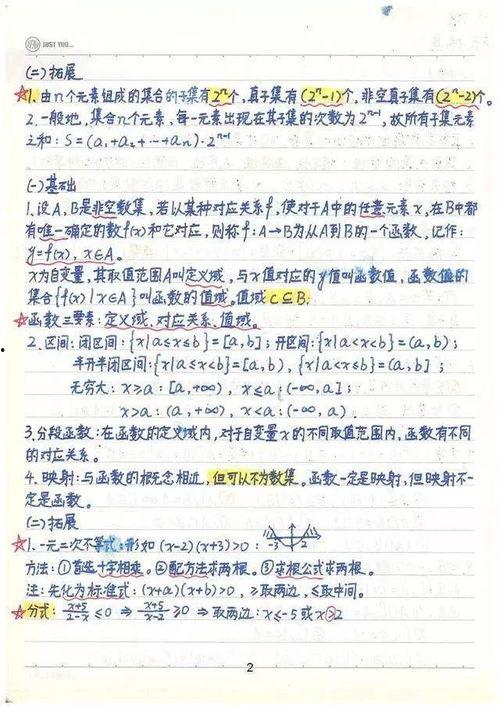 JUST YOU...
(二)拓展
☆1.由n个元素组成的集合的子集有2ⁿ个,真子集有(2ⁿ-1)个,非空真子集有(2ⁿ-2)个。
2.一般地,集合n个元素,每一元素出现在其子集的次数为2ⁿ⁻¹,故所有子集元素
之和:S=(a₁+a₂+…+aₙ)·2ⁿ⁻¹
(一)基础
1.设A,B是非空数集,若以某种对应关系f,使对于A中的任意元素x,在B中都
有唯一确定的数f(x)和它对应,则称f:A→B为从A到B的一个函数,记作:
y=f(x),x∈A。
x为自变量,其取值范围A叫定义域,与x值对应的y值叫函数值,函数值的
集合{f(x)|x∈A}叫函数的值域。值域C⊆B.
☆函数三要素:定义域、对应关系、值域。
2.区间:闭区间:{x|a≤x≤b}=[a,b];开区间:{x|a<x<b}=(a,b);
半开半闭区间:{x|a≤x<b}=[a,b),{x|a<x≤b}=(a,b];
无穷大:x≥a:[a,+∞),x≤a:(-∞,a];
x>a:(a,+∞),x<a:(-∞,a)
3.分段函数:在函数的定义域内,对于自变量x的不同取值范围内,函数有不同
的对应关系。
4.映射:与函数的概念相近,但可以不为数集。函数一定是映射,但映射不一
定是函数。
(二)拓展
☆1.一元二次不等式:形如(x-2)(x+3)>0: -3 2
方法:①首选十字相乘。②配方法求两根。③求根公式求两根。
注:先化为标准式:(x+a)(x+b)>0,≥取两边,≤取中间。
☆分式:(x+5)/(2-x)≤0⇒(x+5)/(x-2)≥0⇒取两边:x≤-5或x>2
2